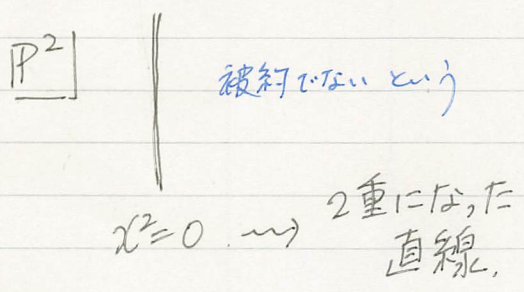 P²
被約でないという
x²=0 ⇝ 2重になった
直線.